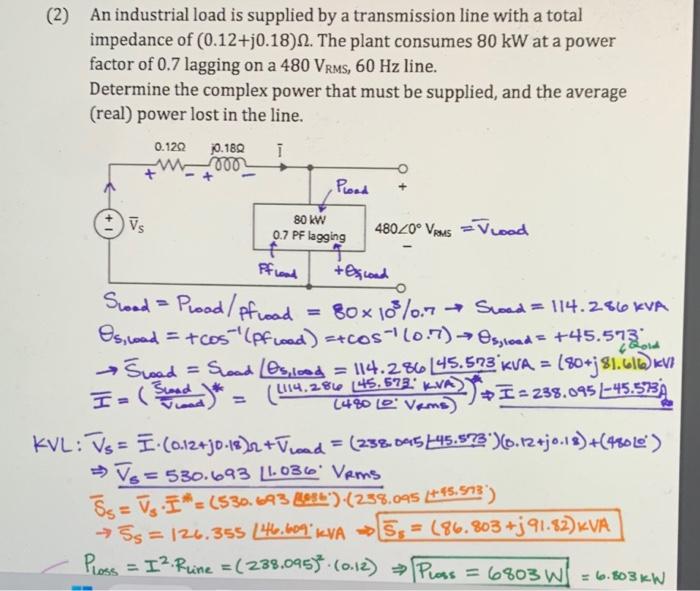 (2) An industrial load is supplied by a transmission line with a total
impedance of (0.12+j0.18)Ω. The plant consumes 80 kW at a power
factor of 0.7 lagging on a 480 VRMS, 60 Hz line.
Determine the complex power that must be supplied, and the average
(real) power lost in the line.
0.12Ω j0.18Ω Ī
+ − + −
Pload +
+ − V̄s
80 kW
0.7 PF lagging
480∠0° VRMS = V̄load
−
Pfload +θs,load
Sload = Pload/pfload = 80×10³/0.7 → Sload = 114.286 kVA
θs,load = +cos⁻¹(pfload) = +cos⁻¹(0.7) → θs,load = +45.573°
Qold
→ S̄load = Sload ∠θs,load = 114.286 ∠45.573° kVA = (80+j81.616)kVA
Ī = (S̄load / V̄load)* = ((114.286 ∠45.573° kVA) / (480 ∠0° Vrms))* → Ī = 238.095 ∠-45.573° A
KVL: V̄s = Ī·(0.12+j0.18)Ω + V̄load = (238.095 ∠-45.573°)(0.12+j0.18)+(480∠0°)
⇒ V̄s = 530.693 ∠1.036° Vrms
S̄s = V̄s·Ī* = (530.693 ∠1.036°)·(238.095 ∠+45.573°)
→ S̄s = 126.355 ∠46.609° kVA → S̄s = (86.803+j91.82)kVA
Ploss = I²·Rline = (238.095)²·(0.12) ⇒ Ploss = 6803 W = 6.803 kW